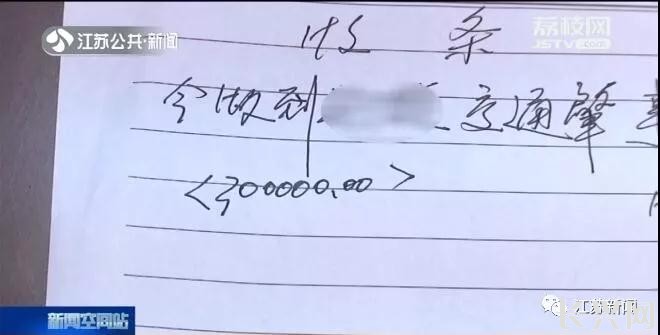 江苏公共·新闻
荔枝网
JSTV.com
收 条
今收到 交通肇事
<300000.00>
新闻空间站
江苏新闻